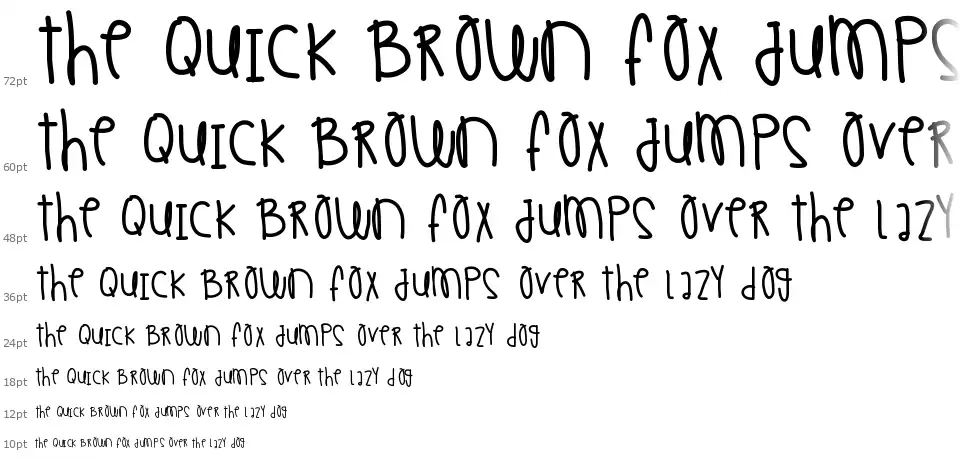 72pt the QUICK BROWN fOX JUMPS
60pt the QUICK BROWN fOX JUMPS OVeR
48pt the QUICK BROWN fOX JUMPS OVeR the LaZY
36pt the QUICK BROWN fOX JUMPS OVeR the LaZY dOg
24pt the QUICK BROWN fOX JUMPS OVeR the LaZY dOg
18pt the QUICK BROWN fOX JUMPS OVeR the LaZY dOg
12pt the QUICK BROWN fOX JUMPS OVeR the LaZY dOg
10pt the QUICK BROWN fOX JUMPS OVeR the LaZY dOg